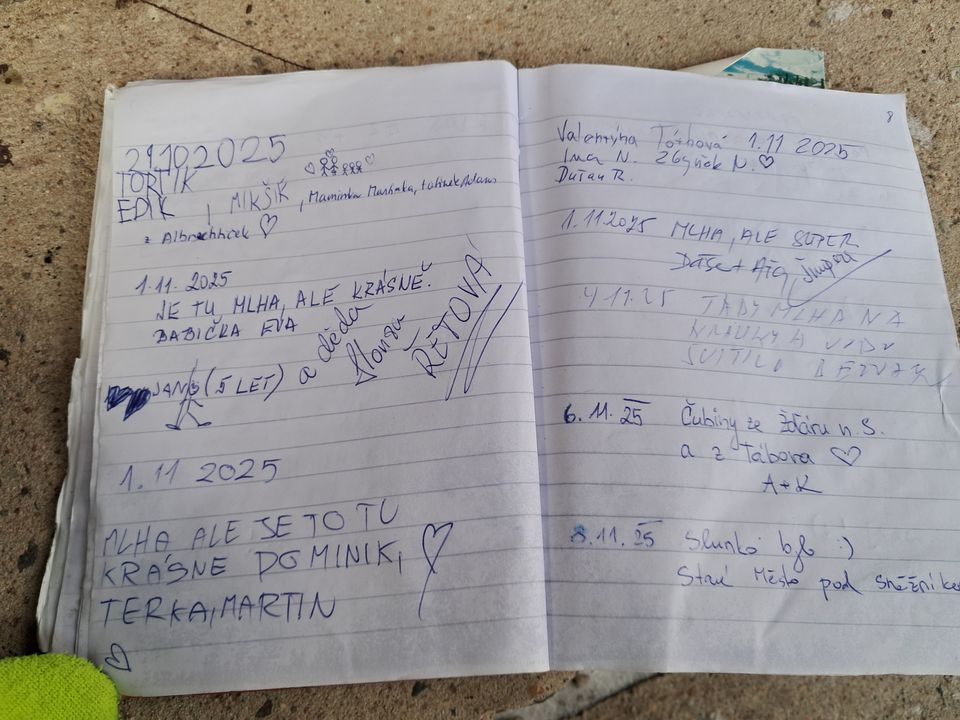 29.10.2025
TORTIK
EDIK , MIKŠÍK , Maminka Marínka, tatínek Adam
z Albrechtiček
1.11. 2025
JE TU MLHA, ALE KRÁSNĚ.
BABIČKA EVA
JANS (5 LET) a děda Slonsu
ŘETOVÁ
1.11 2025
MLHA ALE JE TO TU
KRÁSNE DOMINIK,
TERKA, MARTIN
8
Valentýna Tóthová 1.11 2025
Iva N. Zbyněk N.
Dušan R.
1.11.2025 MLHA, ALE SUPER
Dáše +
4 11.25 TADY MLHA NA
6.11.25 Čubiny ze Žďáru n.S.
a z Tábora
A+K
8.11.25 Slunko bylo :)
Staré Město pod